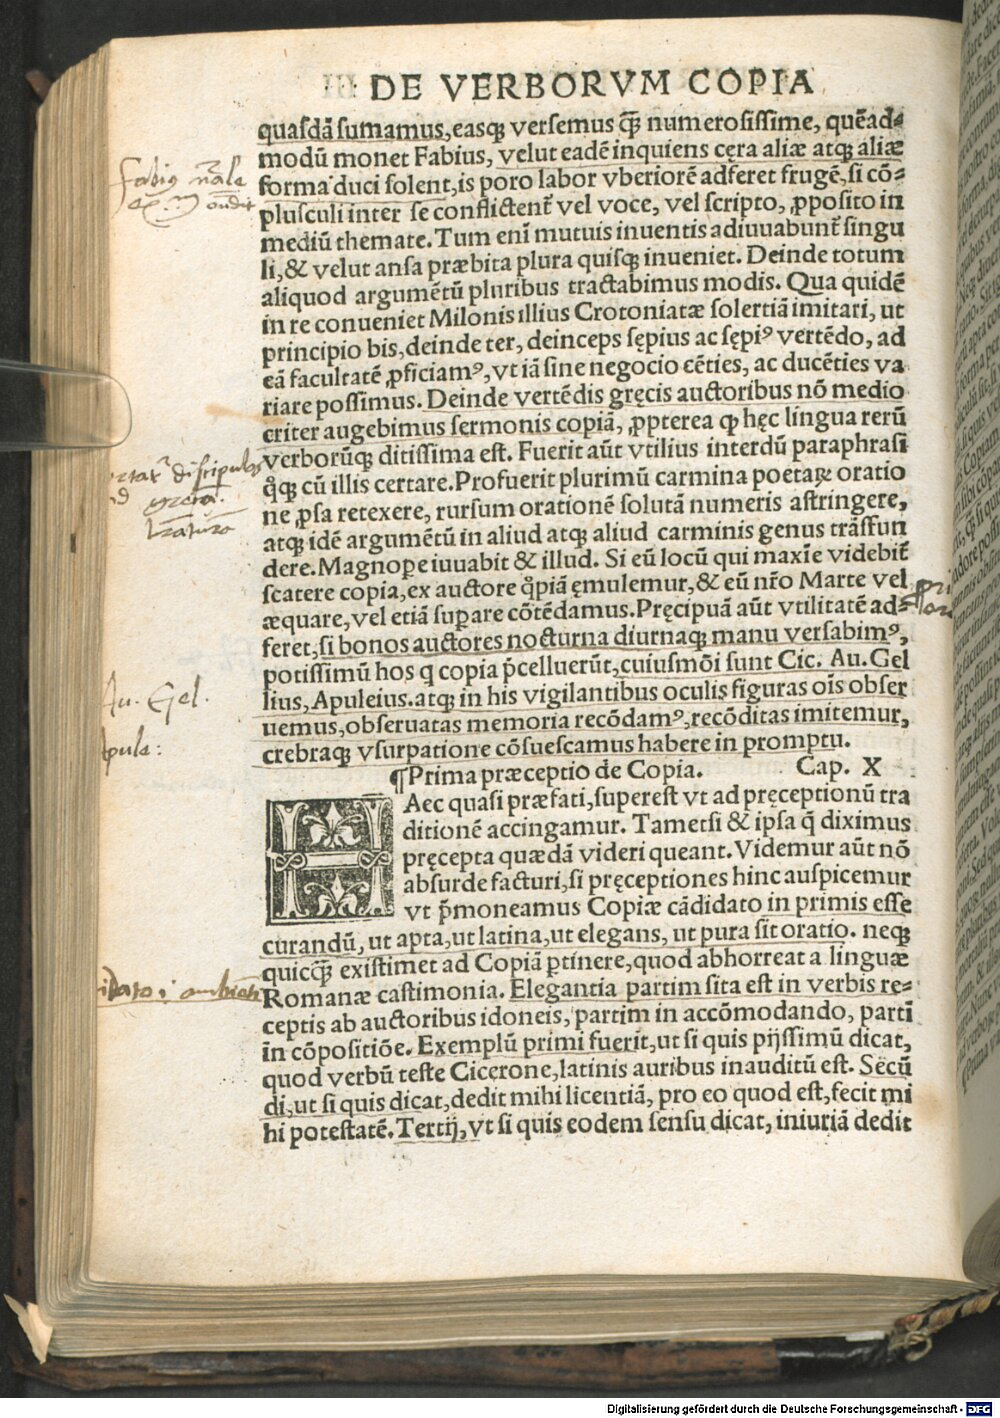 DE VERBORVM COPIA
quasdā sumamus, easqꝫ versemus q̃ꝫ numerosissime, quēad=
modū monet Fabius, velut eadē inquiens cęra aliæ atqꝫ aliæ
forma duci solent, is poro labor vberiorē adferet frugē, si cō=
plusculi inter se conflictent̃ vel voce, vel scripto, ꝓposito in
mediū themate. Tum enī mutuis inuentis adiuuabunt̃ singu
li, & velut ansa præbita plura quisqꝫ inueniet. Deinde totum
aliquod argumētū pluribus tractabimus modis. Qua quidē
in re conueniet Milonis illius Crotoniatæ solertiā imitari, ut
principio bis, deinde ter, deinceps sępius ac sępiꝰ vertēdo, ad
eā facultatē ꝓficiamꝰ, vt iā sine negocio cēties, ac ducēties va
riare possimus. Deinde vertēdis gręcis auctoribus nō medio
criter augebimus sermonis copiā, ꝓpterea ꝙ hęc lingua rerū
verborūqꝫ ditissima est. Fuerit aūt vtilius interdū paraphrasi
q̊qꝫ cū illis certare. Profuerit plurimū carmina poetaꝝ oratio
ne ꝓsa retexere, rursum orationē solutā numeris astringere,
atqꝫ idē argumētū in aliud atqꝫ aliud carminis genus trāsfun
dere. Magnoꝑe iuuabit & illud. Si eū locū qui maxīe videbit̃
scatere copia, ex auctore q̊piā ęmulemur, & eū nr̄o Marte vel
æquare, vel etiā suꝑare cōtēdamus. Pręcipuā aūt vtilitatē ad=
feret, si bonos auctores nocturna diurnaqꝫ manu versabimꝰ,
potissimū hos q copia p̄celluerūt, cuiusmōi sunt Cic. Au. Gel
lius, Apuleius. atqꝫ in his vigilantibus oculis figuras oīs obser
uemus, obseruatas memoria recōdamꝰ, recōditas imitemur,
crebraqꝫ vsurpatione cōsuescamus habere in promptu.
¶Prima præceptio de Copia. Cap. X
HAec quasi præfati, superest vt ad pręceptionū tra
ditionē accingamur. Tametsi & ipsa q̄ diximus
pręcepta quædā videri queant. Videmur aūt nō
absurde facturi, si pręceptiones hinc auspicemur
vt p̄moneamus Copiæ cādidato in primis esse
curandū, ut apta, ut latina, ut elegans, ut pura sit oratio. neqꝫ
quicq̃ꝫ existimet ad Copiā ꝑtinere, quod abhorreat a linguæ
Romanæ castimonia. Elegantia partim sita est in verbis re=
ceptis ab auctoribus idoneis, partim in accōmodando, partī
in cōpositiōe. Exemplū primi fuerit, ut si quis pijssimū dicat,
quod verbū teste Cicerone, latinis auribus inauditū est. Secū
di, ut si quis dicat, dedit mihi licentiā, pro eo quod est, fecit mi
hi potestatē. Tertij, vt si quis eodem sensu dicat, iniuriā dedit
Au. Gel.
Digitalisierung gefördert durch die Deutsche Forschungsgemeinschaft - DFG